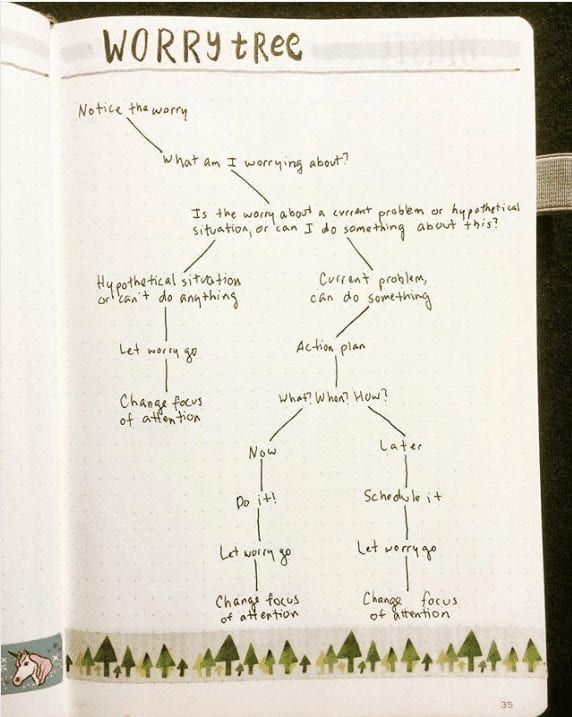 WORRY tREE
Notice the worry
What am I worrying about?
Is the worry about a current problem or hypothetical
situation, or can I do something about this?
Hypothetical situation
or can't do anything
Current problem,
can do something
Let worry go
Action plan
Change focus
of attention
What? When? How?
Now
Later
Do it!
Schedule it
Let worry go
Let worry go
Change focus
of attention
Change focus
of attention
35